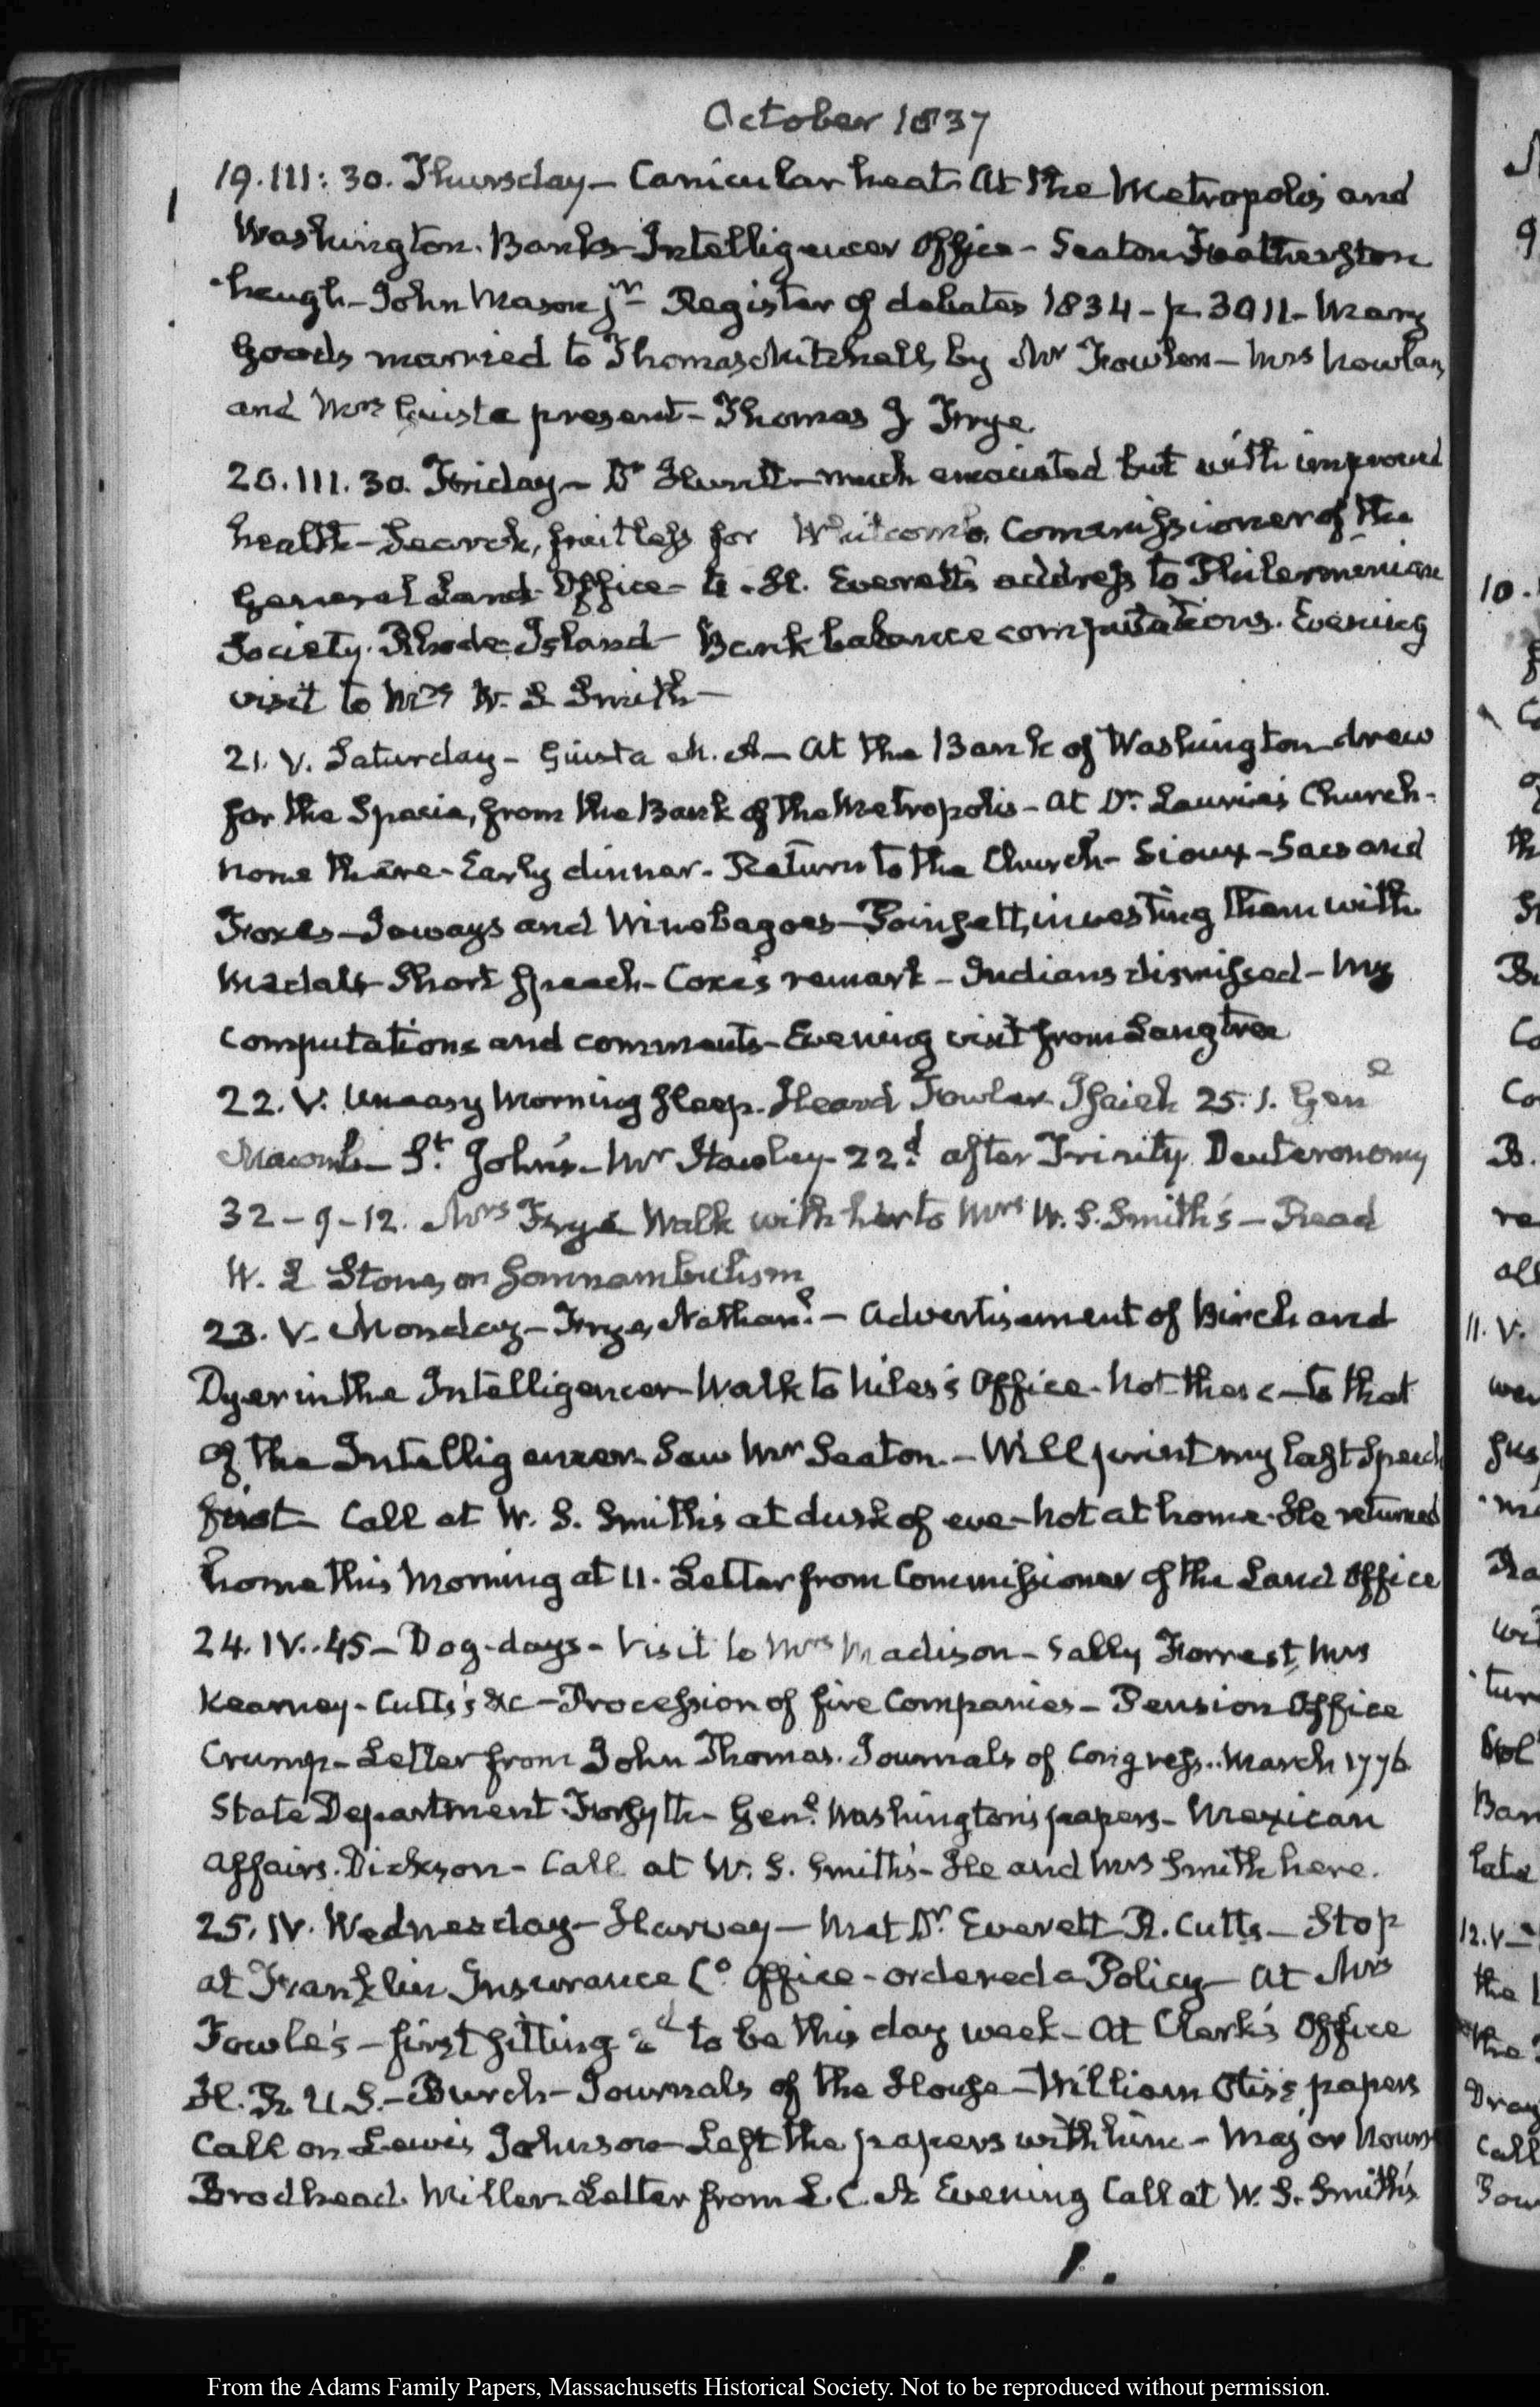 October 1837
19. III: 30. Thursday – Canicular heat. At the Metropolis and
Washington. Banks – Intelligencer Office – Seaton Featherston
-haugh – John Mason jr. Register of debates 1834 – p. 3011 – Mary
Goods married to Thomas Mitchell, by Mr Fowler – Mrs Nowlan,
and Mrs Giusta present – Thomas J Frye.
20. III. 30. Friday – Dr Hunt – much emaciated but with improved
health – Search, fruitless for Whitcomb, Commissioner of the
General Land Office – A. H. Everett's address to Philermenian
Society. Rhode Island – Bank balance computations. Evening
visit to Mrs W. S Smith –
21. V. Saturday – Giusta M. A – At the Bank of Washington drew
for the Specie, from the Bank of the Metropolis – at Dr. Laurie's Church –
none there – Early dinner. Return to the Church – Sioux – Sacs and
Foxes – Ioways and Winebagoes – Poinsett, investing them with
Medals – Short speech – Coxe's remark – Indians dismissed – My
computations and comments – Evening visit from Langtree
22. V. Uneasy Morning sleep. Heard Fowler Isaiah 25. 1. Genl
Macomb – St. John's – Mr Hawley 22d. after Trinity. Deuteronomy
32 – 9 – 12. Mrs Frye Walk with her to Mrs W. S. Smith's – Read
W. L Stone, on Somnambulism
23. V. Monday – Frye, Nathanl. – Advertisement of Birch and
Dyer in the Intelligencer – Walk to Niles's Office. Not there – to that
of the Intelligencer. Saw Mr Seaton. – Will print my last Speech
first – Call at W. S. Smith's at dusk of eve – Not at home. He returned
home this Morning at 11. Letter from Commissioner of the Land Office
24. IV. 45 – Dog-days – Visit to Mrs Madison – Sally Forrest, Mrs
Kearney – Cutts's &c – Procession of fire Companies – Pension Office
Crump – Letter from John Thomas. Journals of Congress. March 1776
State Department. Forsyth – Genl. Washington's papers – Mexican
Affairs. Dickson – Call at W. S. Smith's – He and Mrs Smith here.
25. IV. Wednesday – Harvey – Met Dr. Everett R. Cutts – Stop
at Franklin Insurance Co. Office – ordered a Policy – At Mrs
Fowle's – first sitting 2d to be this day week – At Clerk's Office
H. R. U. S. – Burch – Journals of the House – William Otis's papers
Call on Lewis Johnson – Left the papers with him – Major Nourse
Brodhead. Miller. Letter from L. C. A. Evening Call at W. S. Smith's
1.
From the Adams Family Papers, Massachusetts Historical Society. Not to be reproduced without permission.